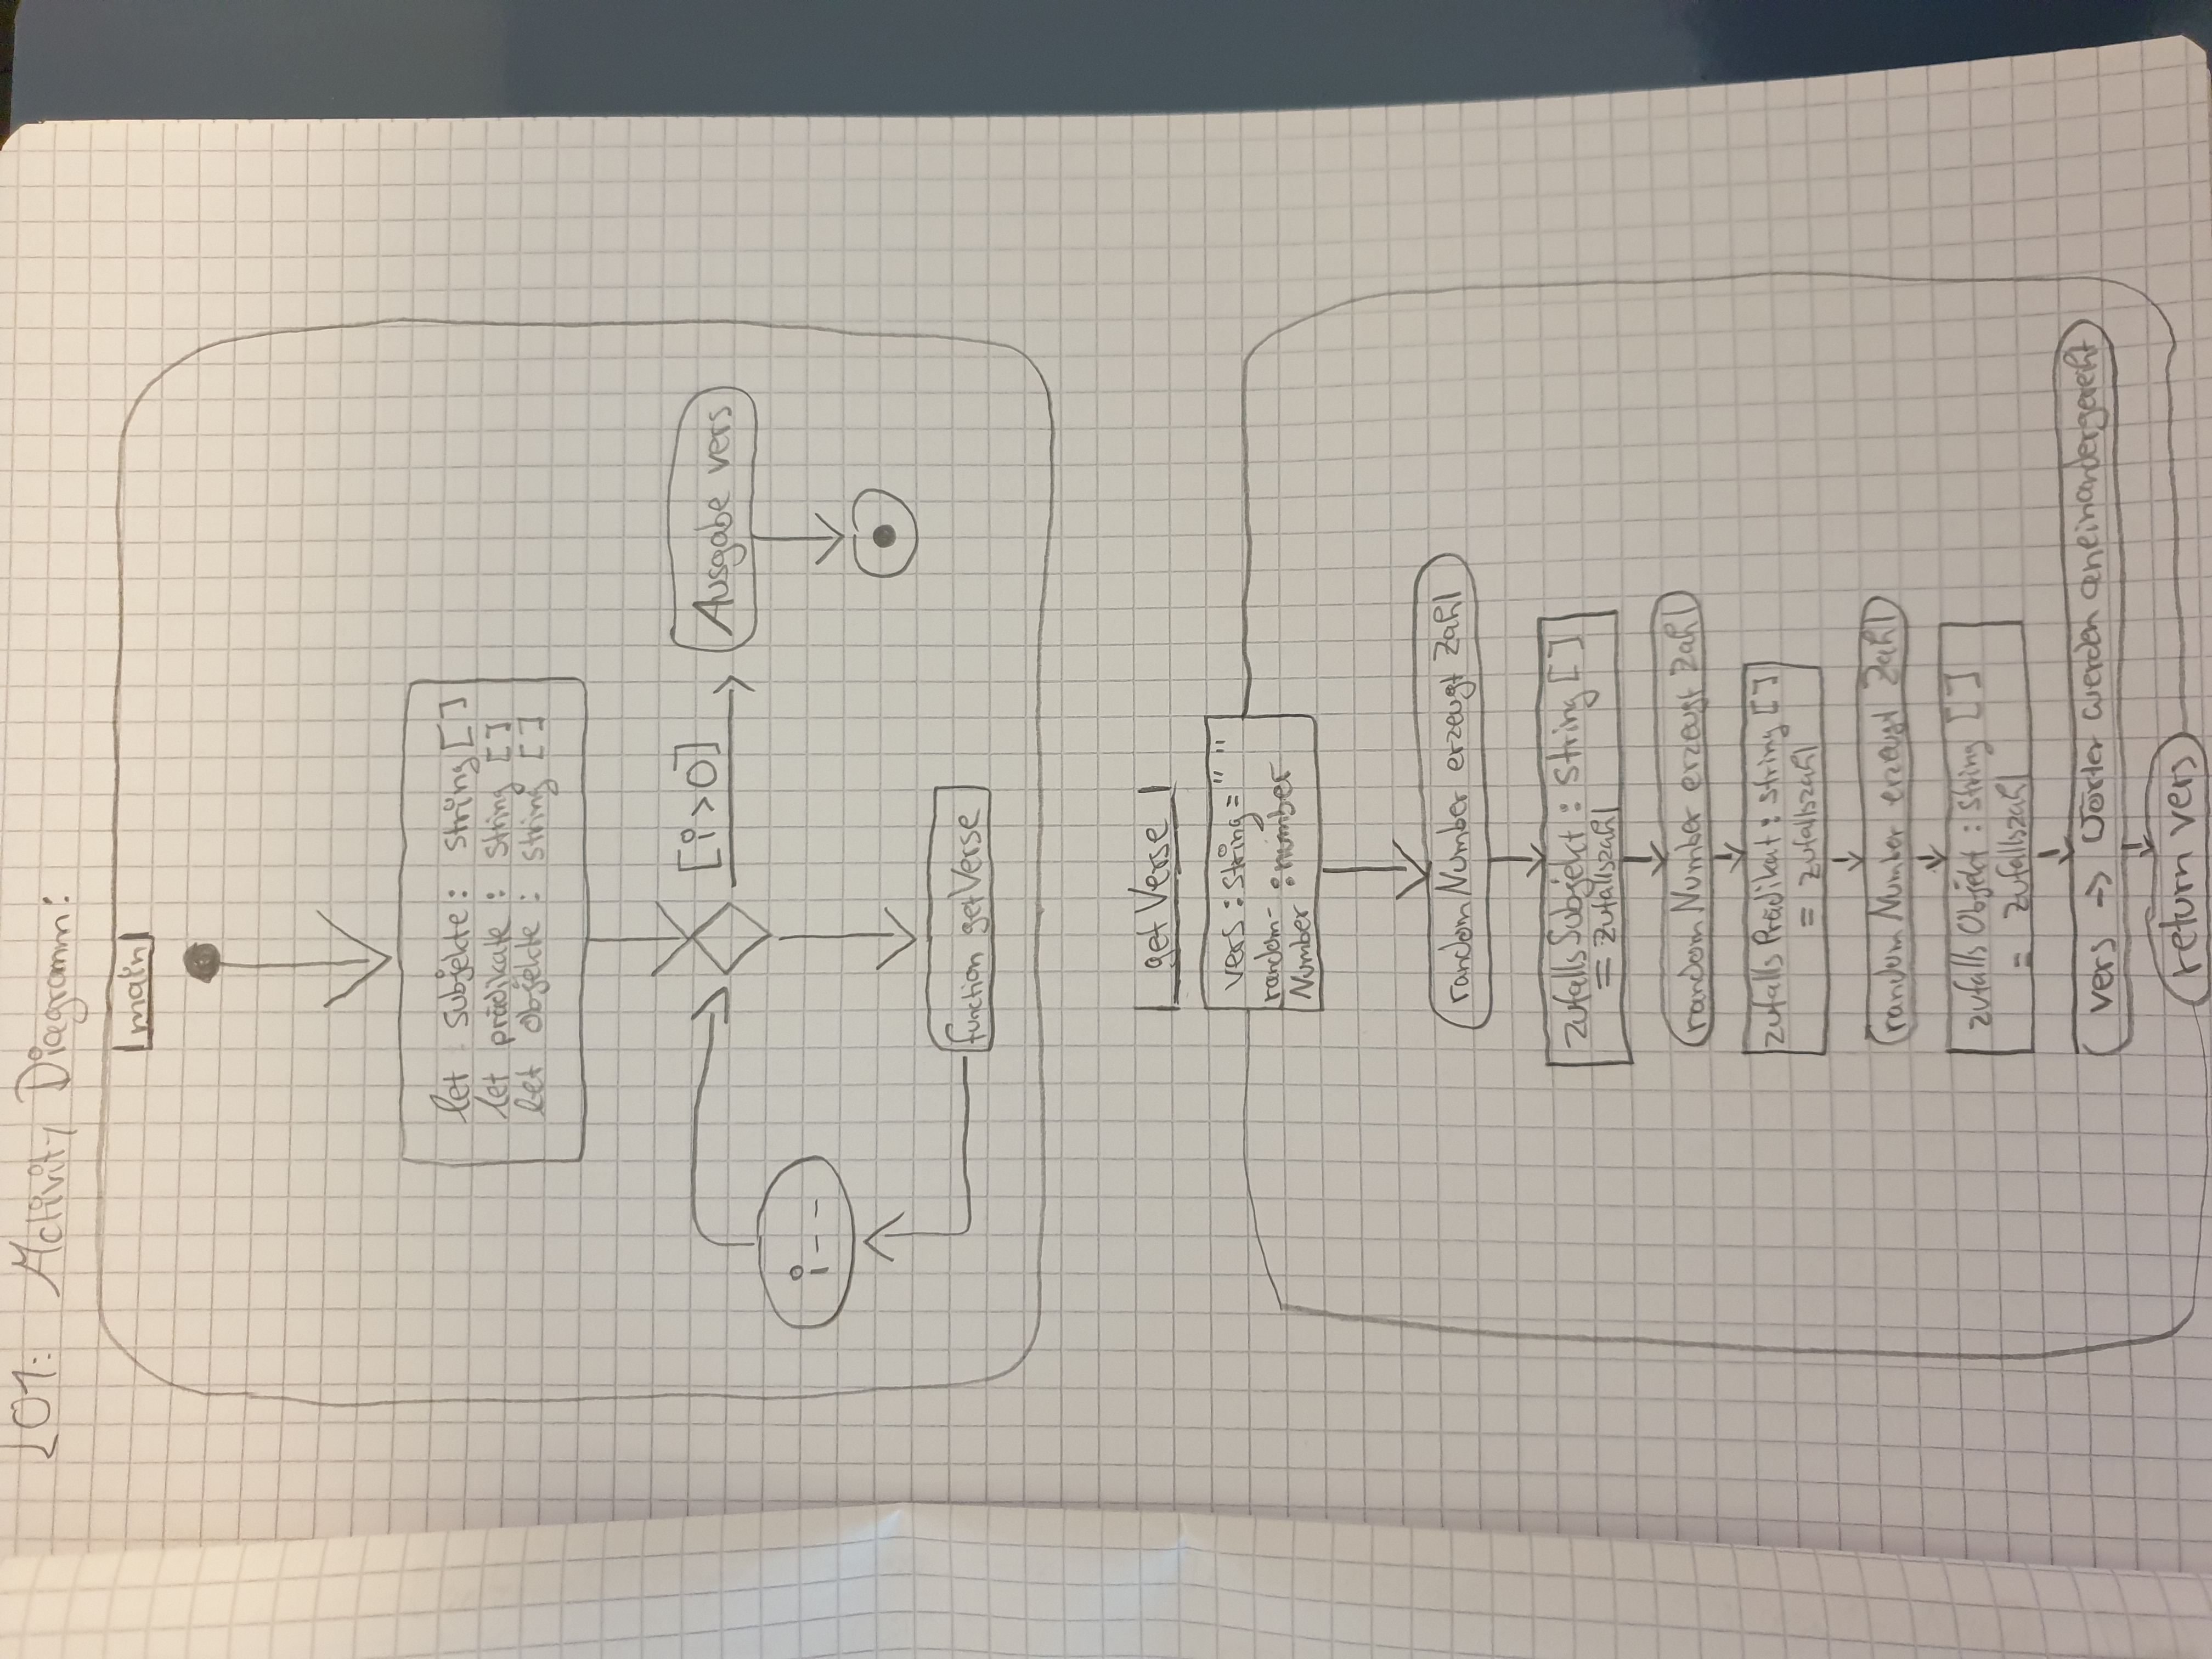 L01: Activity Diagramm:
main
let subjekte: string []
let prädikate: string []
let objekte: string []
[i>0]
Ausgabe vers
i--
function getVerse
getVerse
vers: string = " "
random-
Number : number
randomNumber erzeugt Zahl
zufallsSubjekt: string []
= Zufallszahl
randomNumber erzeugt Zahl
zufallsPrädikat: string []
= zufallszahl
randomNumber erzeugt Zahl
zufallsObjekt: string []
= zufallszahl
vers => Wörter werden aneinandergereiht
return vers